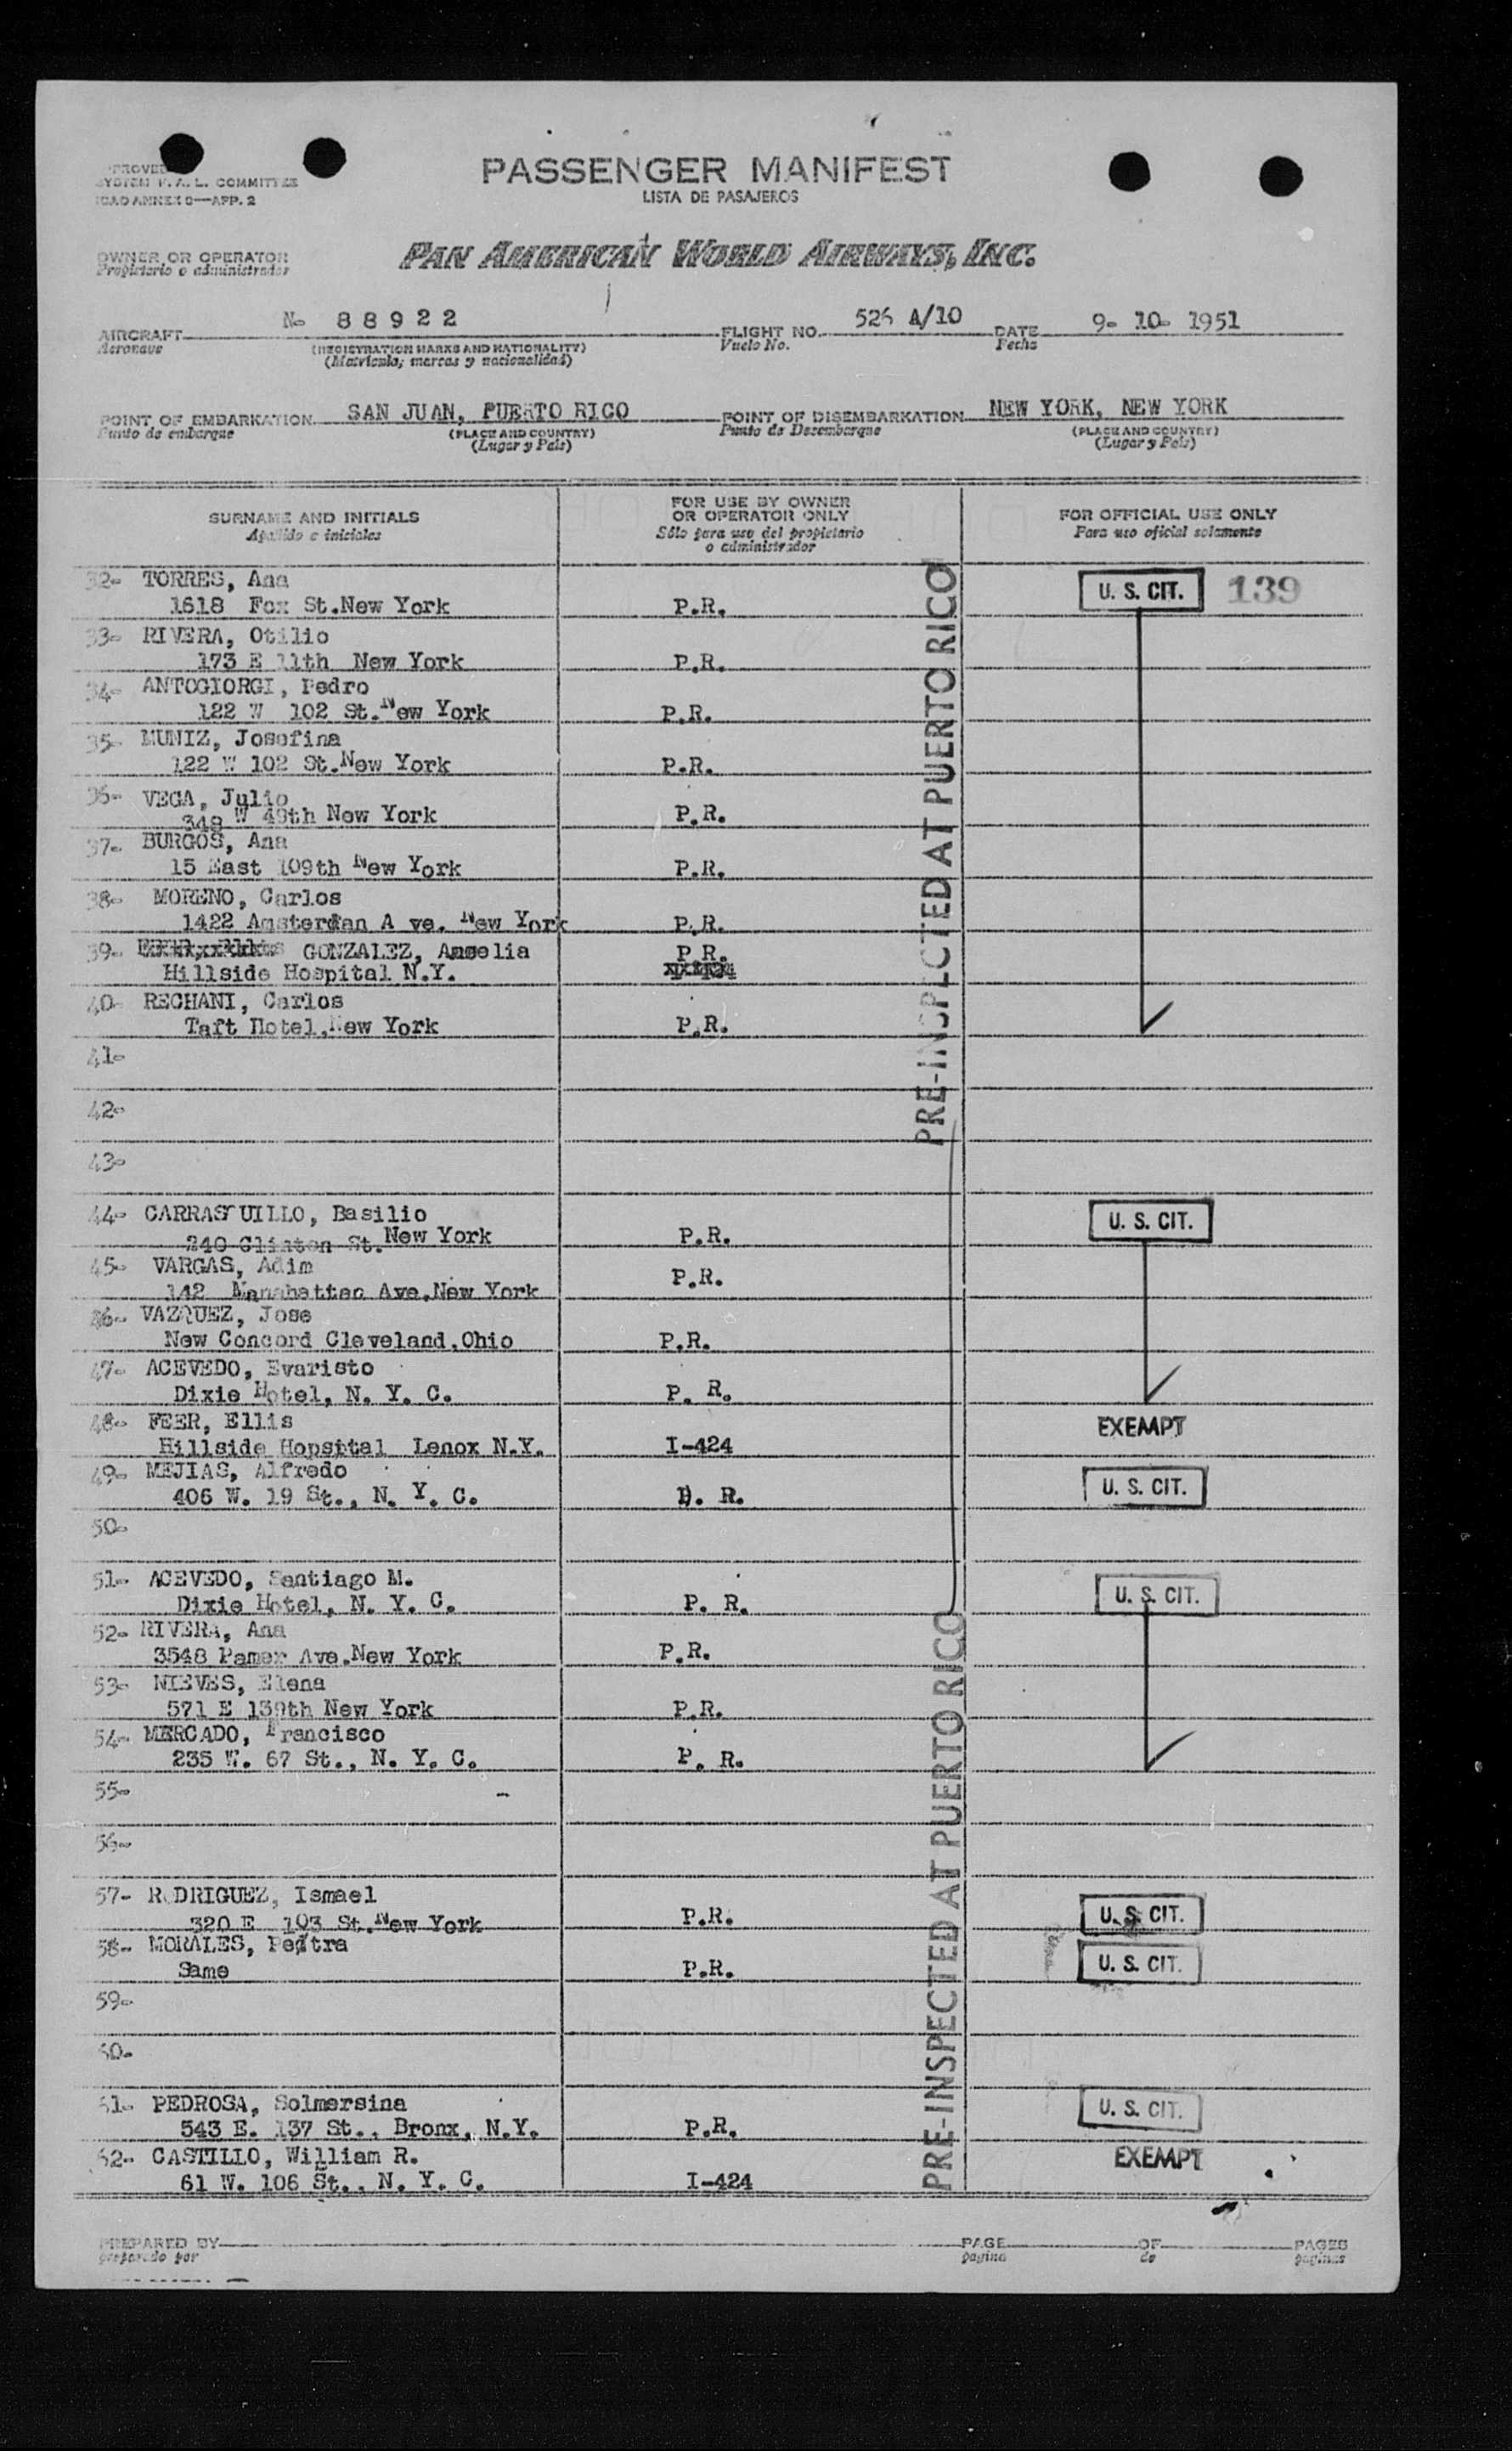 PASSENGER MANIFEST
LISTA DE PASAJEROS
SYSTEM F. A. L. COMMITTEE
ICAO ANNEX 9—APP. 2
OWNER OR OPERATOR
Propietario o administrador
PAN AMERICAN WORLD AIRWAYS, INC.
AIRCRAFT No 88922 FLIGHT NO. 526 A/10 DATE 9- 10- 1951
Aeronave (REGISTRATION MARKS AND NATIONALITY) Vuelo No. Fecha
(Matricula, marcas y nacionalidad)
POINT OF EMBARKATION SAN JUAN, PUERTO RICO POINT OF DISEMBARKATION NEW YORK, NEW YORK
Punto de embarque (PLACE AND COUNTRY) Punto de Desembarque (PLACE AND COUNTRY)
(Lugar y Pais) (Lugar y Pais)
SURNAME AND INITIALS FOR USE BY OWNER OR OPERATOR ONLY FOR OFFICIAL USE ONLY
Apellido e iniciales Sólo para uso del propietario o administrador Para uso oficial solamente
32- TORRES, Ana U. S. CIT. 139
1618 Fox St.New York P.R.
33- RIVERA, Otilio
173 E 11th New York P.R.
34- ANTOGIORGI, Pedro
122 W 102 St.New York P.R.
35- MUNIZ, Josefina
122 W 102 St.New York P.R.
36- VEGA, Julio
348 W 49th New York P.R.
37- BURGOS, Ana
15 East 109th New York P.R.
38- MORENO, Carlos
1422 Amsterdan A ve. New York P.R.
39- GONZALEZ, Amelia P.R.
Hillside Hospital N.Y.
40- RECHANI, Carlos
Taft Hotel,New York P.R.
41-
42-
43-
PRE-INSPECTED AT PUERTO RICO
44- CARRASQUILLO, Basilio U. S. CIT.
240 Clinton St.New York P.R.
45- VARGAS, Adim P.R.
142 Manahattec Ave.New York
46- VAZQUEZ, Jose
New Concord Cleveland.Ohio P.R.
47- ACEVEDO, Evaristo
Dixie Hotel, N. Y. C. P. R.
48- FEER, Ellis EXEMPT
Hillside Hopsital Lenox N.Y. I-424
49- MEJIAS, Alfredo U. S. CIT.
406 W. 19 St., N. Y. C. P. R.
50-
51- ACEVEDO, Santiago M. U. S. CIT.
Dixie Hotel, N. Y. C. P. R.
52- RIVERA, Ana
3548 Pamer Ave.New York P.R.
53- NIEVES, Elena
571 E 139th New York P.R.
54- MERCADO, Francisco
235 W. 67 St., N. Y. C. P. R.
55-
56-
57- RODRIGUEZ, Ismael
320 E 103 St.New York P.R. U. S. CIT.
58- MORALES, Peatra
Same P.R. U. S. CIT.
59-
60-
PRE-INSPECTED AT PUERTO RICO
61- PEDROSA, Solmersina U. S. CIT.
543 E. 137 St., Bronx, N.Y. P.R.
62- CASTILLO, William R. EXEMPT
61 W. 106 St., N. Y. C. I-424
PREPARED BY PAGE OF PAGES
preparado por pagina de paginas